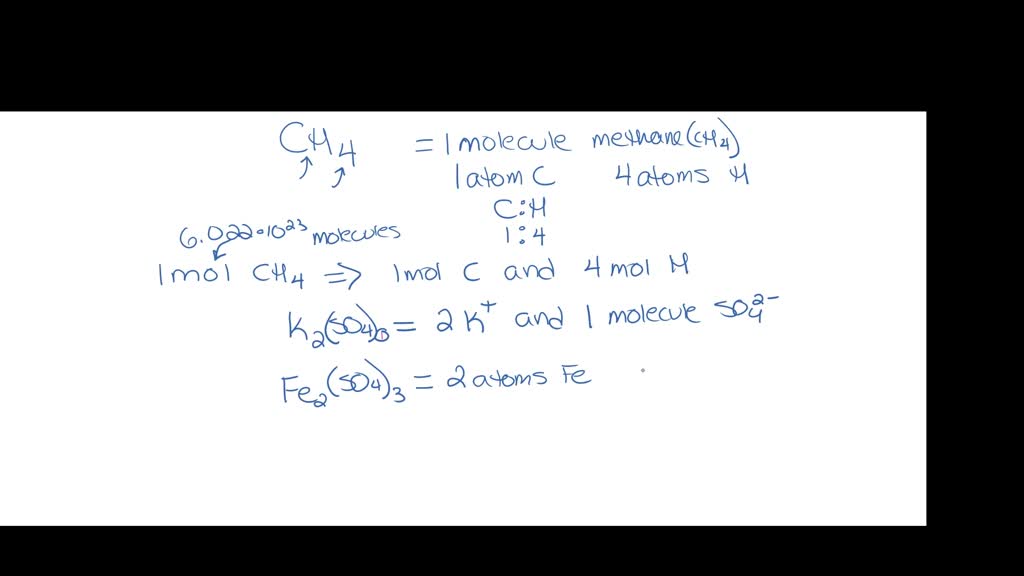 CH4 = 1 molecule methane (CH4)
1 atom C 4 atoms H
C:H
1:4
6.022•10^23 molecules
1mol CH4 ⇒ 1mol C and 4 mol H
K2(SO4)1 = 2 K^+ and 1 molecule SO4^2-
Fe2(SO4)3 = 2 atoms Fe